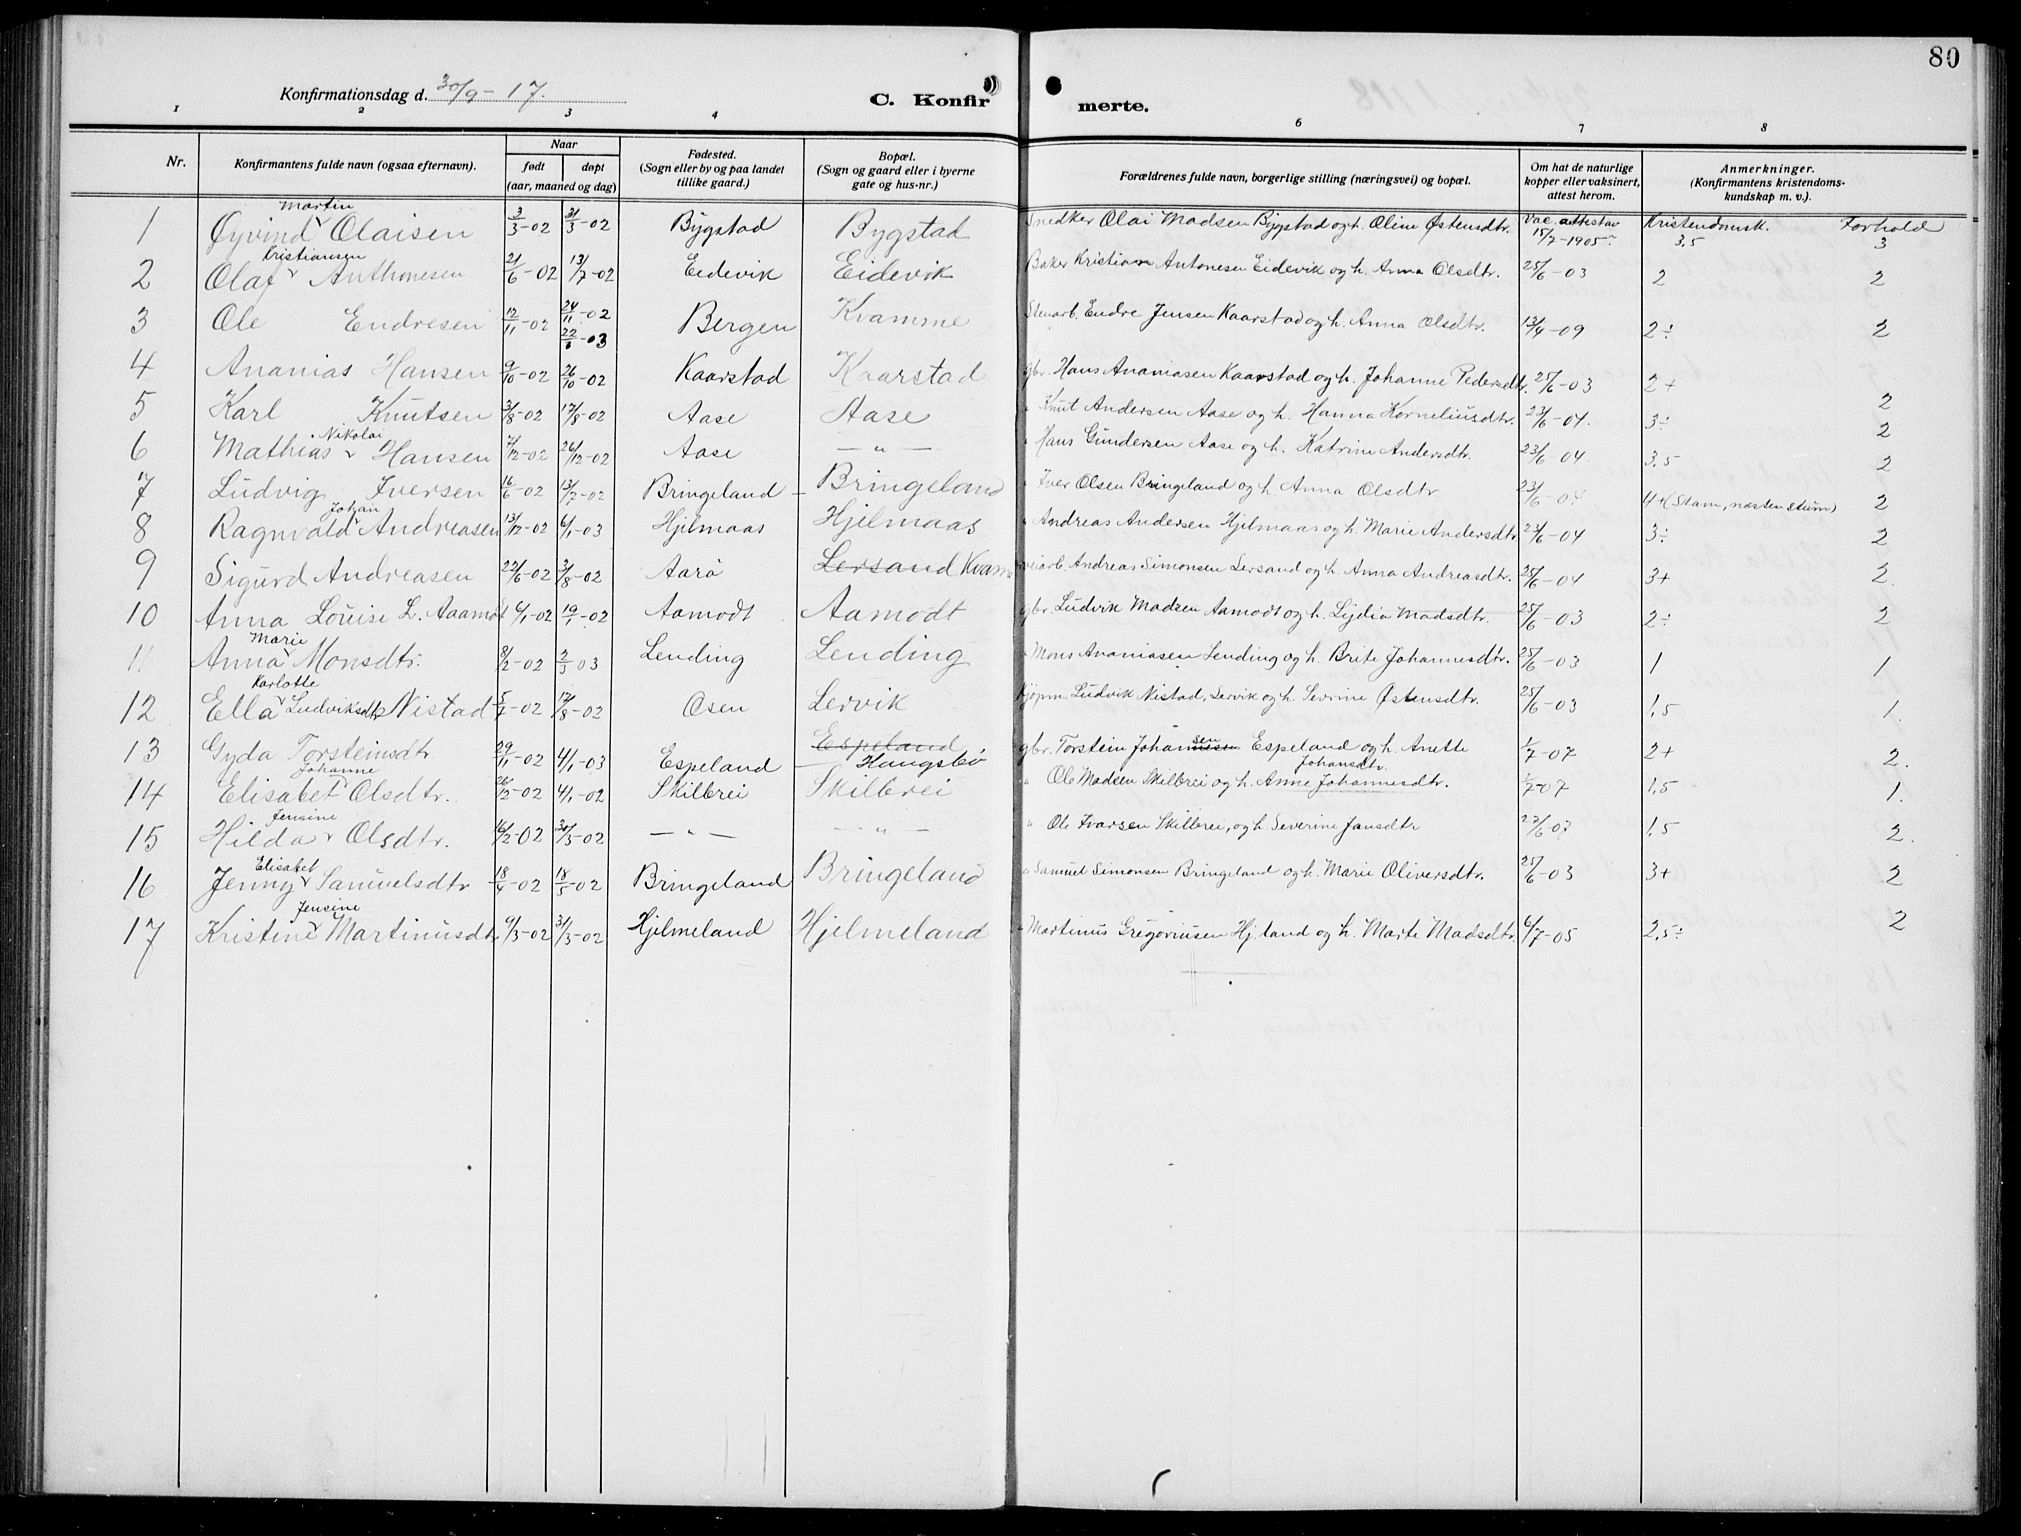 80
Konfirmationsdag d. 30/9 - 17.
C. Konfirmerte.
1 2 3 4 6 7 8
Nr.
Konfirmantens fulde navn (ogsaa efternavn).
Naar
født døpt
(aar, maaned og dag)
Fødested.
(Sogn eller by og paa landet
tillike gaard.)
Bopæl.
(Sogn og gaard eller i byerne
gate og hus-nr.)
Forældrenes fulde navn, borgerlige stilling (næringsvei) og bopæl.
Om hat de naturlige
kopper eller vaksinert,
attest herom.
Anmerkninger.
(Konfirmantens kristendoms-
kundskap m. v.).
Kristendomsk. Forhold
1 Øyvind Martin Olaisen 3/3-02 31/3-02 Bygstad Bygstad Snedker Olai Madsen Bygstad og h. Oline Østensdtr. Vac. attest av 15/7-1905 3,5 3
2 Olaf Kristiansen Anthonesen 21/6-02 13/7-02 Eidevik Eidevik Baker Kristian Antonesen Eidevik og h. Anna Olsdtr. 25/6-03 2 2
3 Ole Endresen 12/11-02 24/11-02 22/6-03 Bergen Kvamme Stenarb. Endre Jensen Kaarstad og h. Anna Olsdtr. 13/4-09 2÷ 2
4 Ananias Hansen 9/10-02 26/10-02 Kaarstad Kaarstad gbr. Hans Ananiasen Kaarstad og h. Johanne Pedersdtr. 25/6-03 2+ 2
5 Karl Knutsen 3/8-02 17/8-02 Aase Aase " Knut Andersen Aase og h. Hanna Korneliusdtr. 23/6-04. 3÷ 2
6 Mathias Nikolai Hansen 7/12-02 26/12-02 Aase - " - " Hans Gundersen Aase og h. Katrine Andersdtr. 23/6-04. 3,5 2
7 Ludvig Iversen 16/6-02 13/7-02 Bringeland Bringeland " Iver Olsen Bringeland og h. Anna Olsdtr. 23/6-04 4+ (Stam, næsten stum) 2
8 Ragnvald Johan Andreasen 13/12-02 6/1-03 Hjelmaas Hjelmaas " Andreas Andersen Hjelmaas og h. Marie Andersdtr. 23/6-04 3÷ 2
9 Sigurd Andreasen 22/6-02 3/8-02 Aarø Lersand Kvam veiarb. Andreas Simonsen Lersand og h. Anna Andreasdtr. 25/6-04 3+ 2.
10 Anna Louise L. Aaamot 6/1-02 19/1-02 Aamodt Aamodt gbr. Ludvik Madsen Aamodt og h. Lydia Madsdtr. 25/6-03 2÷ 2
11 Anna Marie Monsdtr. 8/2-02 2/3 03 Lending Lending " Mons Ananiasen Lending og h. Brite Johannesdtr. 25/6-03 1 1
12 Ella Karlotte Ludviksdtr Nistad 5/7-02 17/8-02 Osen Lervik Kjøpm. Ludvik Nistad, Lervik og h. Severine Østensdtr. 25/6-03 1,5 1.
13 Gyda Torsteinsdtr 29/11-02 4/1-03 Espeland Espeland Haugsbø gbr. Torstein Johansen Espeland og h. Anette Johansdtr. 1/7-07 2+ 2.
14 Elisabet Johanne Olsdtr. 26/12-02 4/1-02 Skilbrei Skilbrei " Ole Madsen Skilbrei og h. Anne Johannesdtr. 1/7-07 1,5 1.
15 Hilda Jensine Olsdtr. 16/2-02 30/3-02 - " - - " - " Ole Ivarsen Skilbrei, og h. Severine Jansdtr 22/6-07 1,5 2.
16 Jenny Elisabet Samuelsdtr 18/4-02 18/5-02 Bringeland Bringeland " Samuel Simonsen Bringeland og h. Marie Oliversdtr. 25/6-03 3+ 2
17 Kristine Jensine Martinusdtr 9/3-02 31/3-02 Hjelmeland Hjelmeland " Martinus Gregoriusen Hj.land og h. Marte Madsdtr. 6/7-05 2,5÷ 2